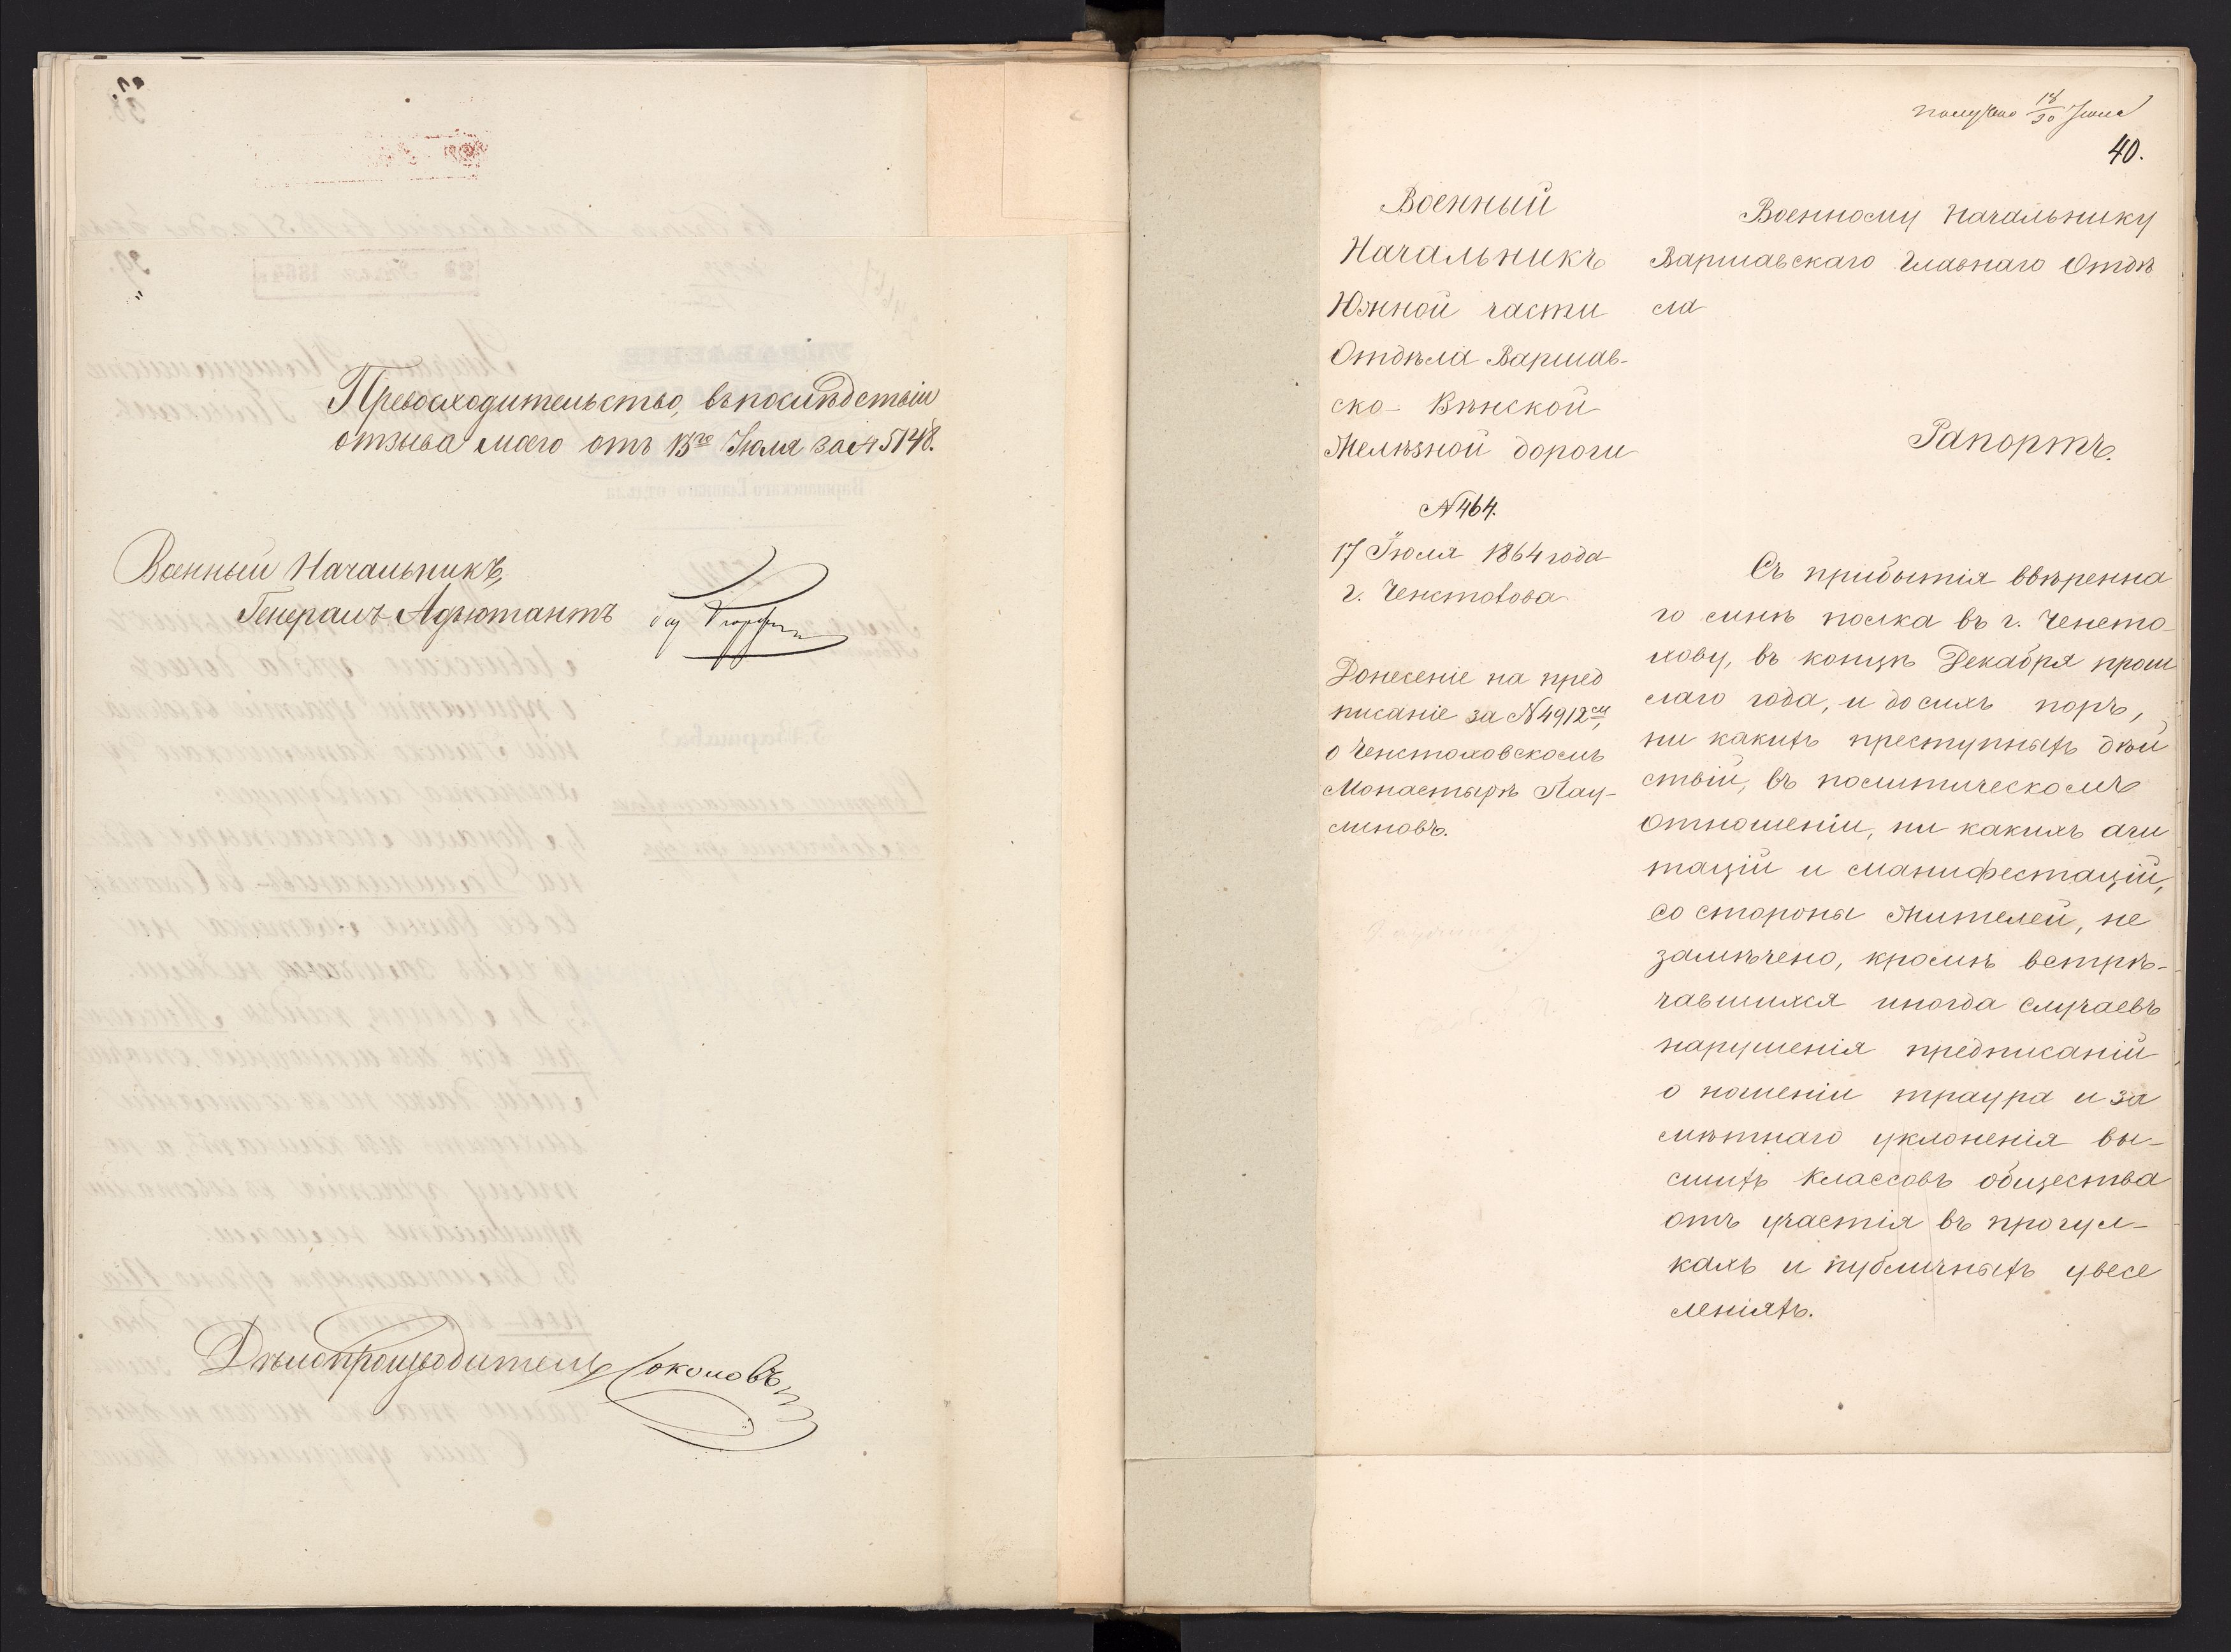 Превосходительство, въпослѣдствіи
отзыва моего отъ 13го Іюля за № 5148.
Военный Начальникъ,
Генералъ-Адъютантъ
Дѣлопроизводитель Соколовъ
получено 18/30 Іюля
40.
Военный
Начальникъ
Южной части
Отдѣла Варшав-
ско-Вѣнской
Желѣзной дороги
№ 464.
17 Іюля 1864 года
г. Ченстохова
Донесеніе на пред
писаніе за № 4912мъ,
о Ченстоховскомъ
Монастырѣ Пау-
линовъ.
Военному Начальнику
Варшавскаго Главнаго Отдѣ
ла
Рапортъ.
Съ прибытія ввѣренна
го мнѣ полка въ г. Ченсто-
хову, въ концѣ Декабря прош
лаго года, и до сихъ поръ,
ни какихъ преступныхъ дѣй
ствій, въ политическомъ
отношеніи, ни какихъ аги
тацій и манифестацій,
со стороны жителей, не
замѣчено, кромѣ встрѣ-
чавшихся иногда случаевъ
нарушенія предписаній
о ношеніи траура и за
мѣтнаго уклоненія вы-
сшихъ классовъ общества
отъ участія въ прогул-
кахъ и публичныхъ увесе
леніяхъ.